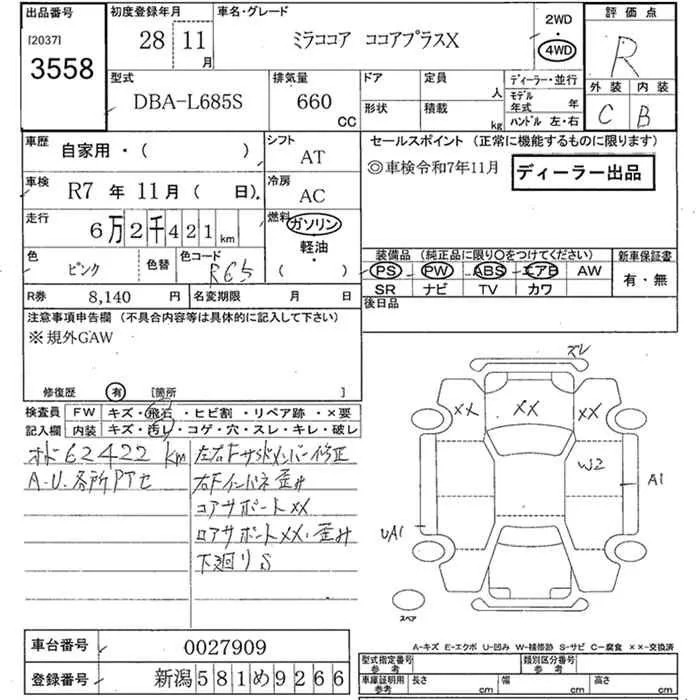 出品番号 初度登録年月 車名・グレード 2WD 評価点
[2037] 28 11月 ミラココア ココアプラスX ・ R
3558 4WD
型式 排気量 ドア 定員 人 ディーラー・並行 外装 内装
DBA-L685S 660 CC 形状 積載 kg モデル年式 年 C B
ハンドル 左・右
車歴 自家用・( ) シフト AT セールスポイント (正常に機能するものに限ります)
◎車検令和7年11月 ディーラー出品
車検 R7年11月( 日). 冷房 AC
走行 6万2千421km 燃料 ガソリン・軽油・( )
色 ピンク 色替 色コード R65 装備品 (純正品に限り○をつけてください) 新車保証書
PS PW ABS エアB AW 有・無
SR ナビ TV カワ
R券 8,140 円 名変期限 月 日 後日品
注意事項申告欄 (不具合内容等は具体的に記入して下さい)
※規外GAW
修復歴 有 [箇所 ]
検査員記入欄 FW キズ・飛石・ヒビ割・リペア跡・×要
内装 キズ・汚レ・コゲ・穴・スレ・キレ・破レ
オド62422km 左右Fサイドメンバー修正
A.U.各所PTセ 右Fインパネ歪み
コアサポートXX
ロアサポートXX・歪み
下廻りS
ズレ
XX XX XX
W2
A1
UA1
スペア
A-キズ E-エクボ U-凹み W-補修跡 S-サビ C-腐食 ××-交換済
車台番号 0027909
登録番号 新潟581め9266
型式指定番号 参考 類別区分番号 参考
車庫証明用 参考 長さ cm 幅 cm 高さ cm